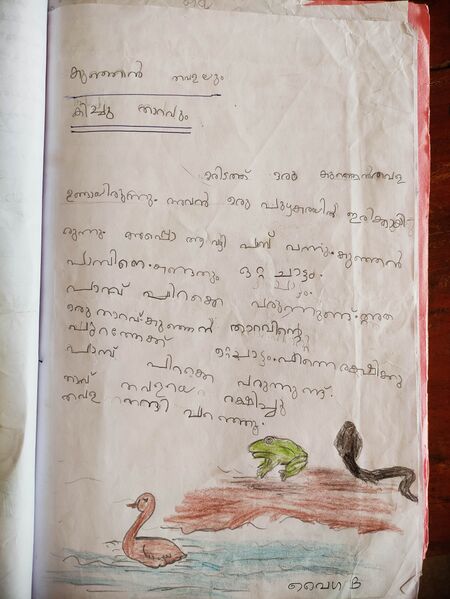 കുഞ്ഞൻ തവളയും
കിച്ചു താറവും
ഒരിടത്ത് ഒരു കുഞ്ഞൻതവള
ഉണ്ടായിരുന്നു. അവൻ ഒരു പുഴകരയിൽ ഇരിക്കുകയാ
രുന്നു. അപ്പൊ ആ വഴി പാമ്പ് വന്നു. കുഞ്ഞൻ
പാമ്പിനെ കണ്ടതും ഒറ്റ ചാട്ടം.
പാമ്പ് പിറകെ വരുന്നുണ്ട്. അത
ഒരു താറവ് കുഞ്ഞൻ താറവിന്റെ
പുറത്തേക്ക് ഒറ്റചാട്ടം. എന്നെ രക്ഷിക്കു
പാമ്പ് പിറകെ വരുന്നുണ്ട്.
തവളയെ രക്ഷിച്ചു
തവള നന്ദി പറഞ്ഞു.
വൈഗ B